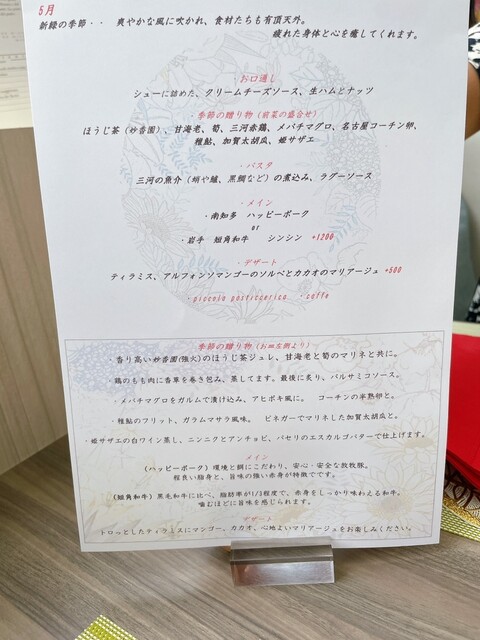 5月
新緑の季節・・ 爽やかな風に吹かれ、食材たちも有頂天外。
疲れた身体と心を癒してくれます。
・お口通し
シューに詰めた、クリームチーズソース、生ハムとナッツ
・季節の贈り物（前菜の盛合せ）
ほうじ茶（妙香園）、甘海老、筍、三河赤鶏、メバチマグロ、名古屋コーチン卵、
稚鮎、加賀太胡瓜、姫サザエ
・パスタ
三河の魚介（蛸や鱸、黒鯛など）の煮込み、ラグーソース
・メイン
・南知多 ハッピーポーク
or
・岩手 短角和牛 シンシン +1200
・デザート
ティラミス、アルフォンソマンゴーのソルベとカカオのマリアージュ +500
・piccola pasticceria ・caffe
季節の贈り物（お皿左側より）
・香り高い妙香園(強火)のほうじ茶ジュレ、甘海老と筍のマリネと共に。
・鶏のもも肉に香草を巻き込み、蒸してます。最後に炙り、バルサミコソース。
・メバチマグロをガルムで漬け込み、アヒポキ風に。 コーチンの半熟卵と。
・稚鮎のフリット、ガラムマサラ風味。 ビネガーでマリネした加賀太胡瓜と。
・姫サザエの白ワイン蒸し、ニンニクとアンチョビ、パセリのエスカルゴバターで仕上げます。
メイン
（ハッピーポーク）環境と餌にこだわり、安心・安全な放牧豚。
程良い脂身と、旨味の強い赤身が特徴です。
（短角和牛）黒毛和牛に比べ、脂肪率が1/3程度で、赤身をしっかり味わえる和牛。
噛むほどに旨味を感じられます。
デザート
トロッとしたティラミスにマンゴー、カカオ、心地よいマリアージュをお楽しみください。